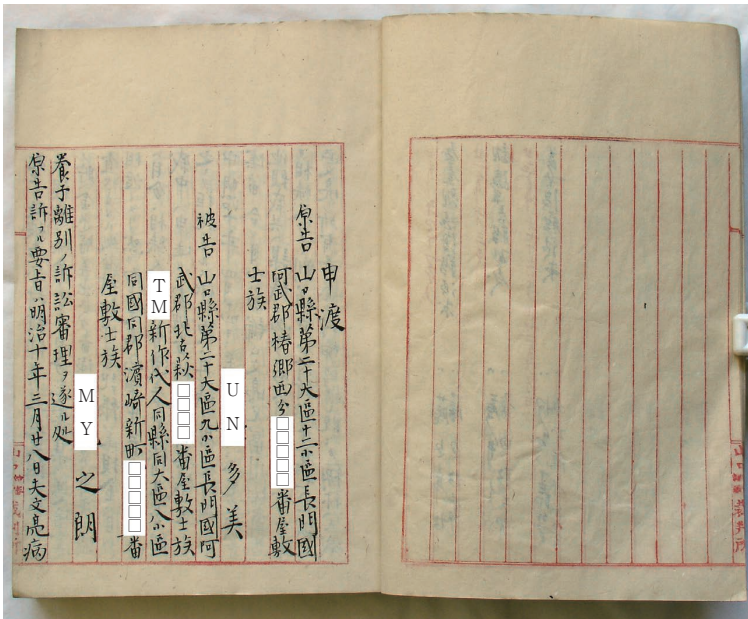 申渡
原告 山口縣第二十大區十二小區長門國
阿武郡椿郷西分□□□□番屋敷
士族
UN 多美
被告 山口縣第二十大區九小區長門國阿
武郡北古萩□□□□番屋敷士族
TM 新作代人同縣同大區八小區
同國同郡濱崎新町□□□□□番
屋敷士族
MY 之朗
養子離別ノ訴訟審理ヲ遂ル処
原告訴フル要旨ハ明治十年三月廿八日夫文亮病
山口縣裁判所